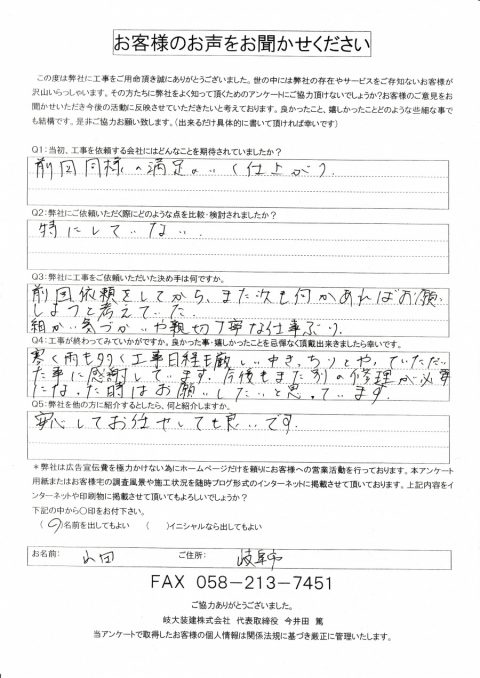 お客様のお声をお聞かせください
この度は弊社に工事をご用命頂き誠にありがとうございました。世の中には弊社の存在やサービスをご存知ないお客様が
沢山いらっしゃいます。その方たちに弊社をよく知って頂くためのアンケートにご協力頂けないでしょうか?お客様のご意見をお
聞かせいただき今後の活動に反映させていただきたいと考えております。良かったこと、嬉しかったことどのような些細な事で
も結構です。是非ご協力お願い致します。(出来るだけ具体的に書いて頂ければ幸いです)
Q1:当初、工事を依頼する会社にはどんなことを期待されていましたか?
前回同様の満足のいく仕上がり
Q2:弊社にご依頼いただく際にどのような点を比較・検討されましたか?
特にしていない
Q3:弊社に工事をご依頼いただいた決め手は何ですか。
前回依頼をしてから、また次も何かあればお願い
しようと考えていた
細かい気づかいや親切丁寧な仕事ぶり
Q4:工事が終わってみていかがですか。良かった事・嬉しかったことを忌憚なく頂戴出来ましたら幸いです。
寒く雨も多く工事日程も厳しい中きっちりとやっていただい
た事に感謝しています。今後もまた別の修理が必要
になった時はお願いしたいと思っています
Q5:弊社を他の方に紹介するとしたら、何と紹介しますか。
安心してお任せしても良いです
*弊社は広告宣伝費を極力かけない為にホームページだけを頼りにお客様への営業活動を行っております。本アンケート
用紙またはお客様宅の調査風景や施工状況を随時ブログ形式のインターネットに掲載させて頂いております。上記内容をイ
ンターネットや印刷物に掲載させて頂いてもよろしいでしょうか?
下記の中から○印をお付下さい。
(○)名前を出してもよい ( )イニシャルなら出してもよい
お名前: 山田 ご住所: 岐阜市
FAX 058-213-7451
ご協力ありがとうございました。
岐大装建株式会社 代表取締役 今井田 篤
当アンケートで取得したお客様の個人情報は関係法規に基づき厳正に管理いたします。